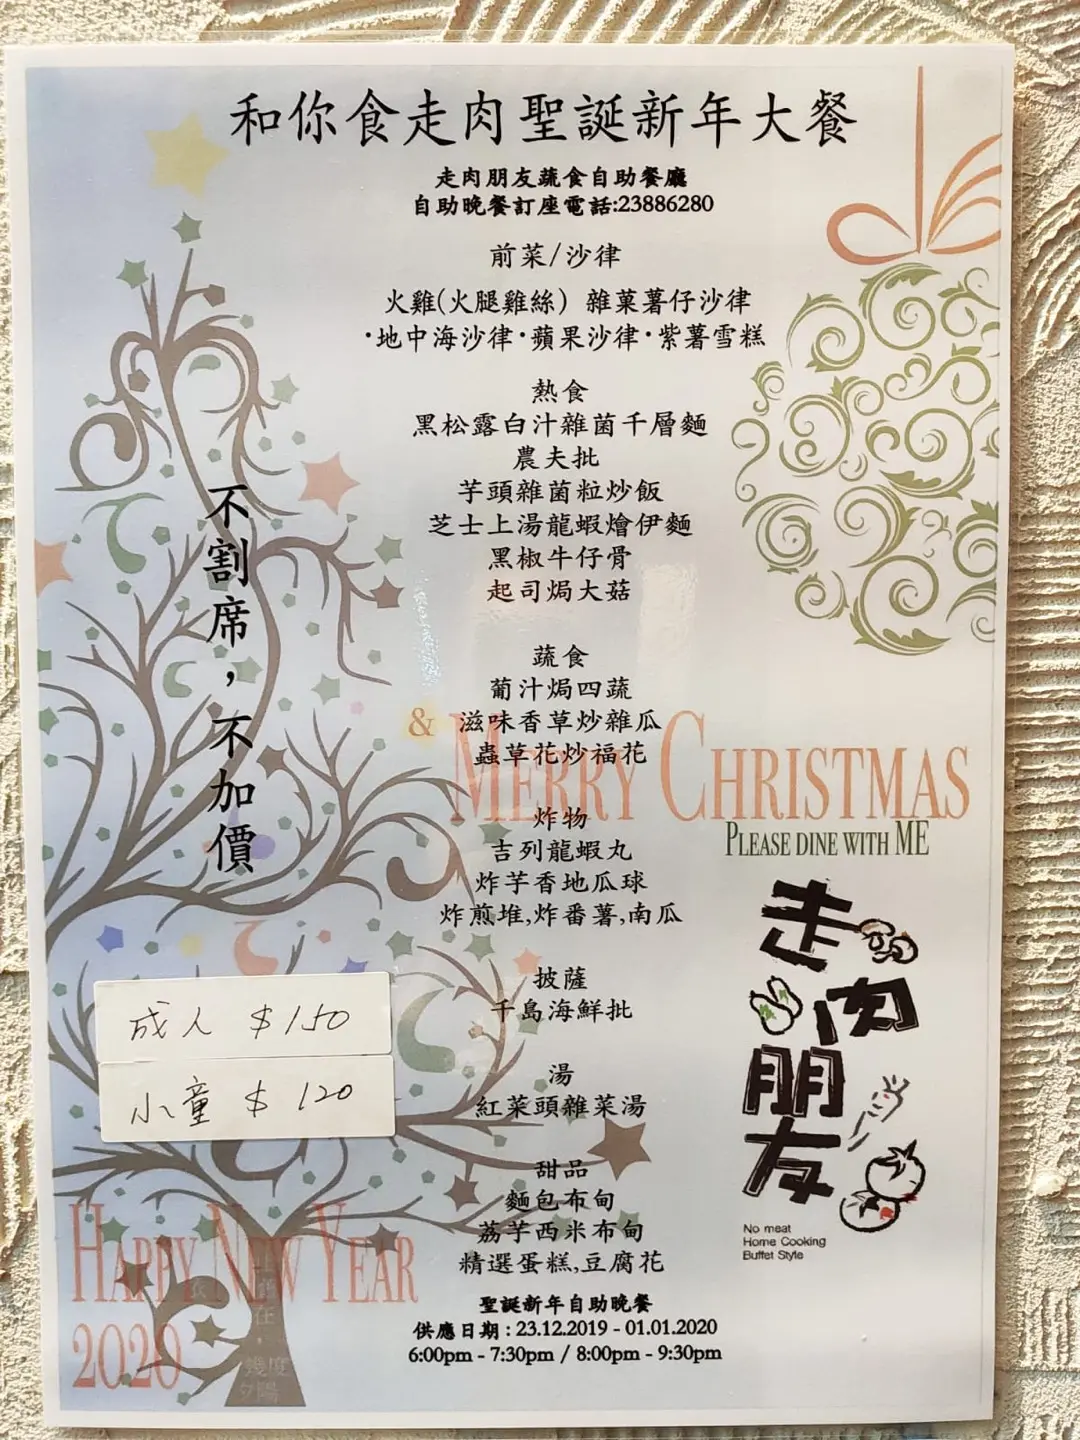 和你食走肉聖誕新年大餐
走肉朋友蔬食自助餐廳
自助晚餐訂座電話:23886280
前菜/沙律
火雞(火腿雞絲) 雜菓薯仔沙律
·地中海沙律·蘋果沙律·紫薯雪糕
熱食
黑松露白汁雜菌千層麵
農夫批
芋頭雜菌粒炒飯
芝士上湯龍蝦燴伊麵
黑椒牛仔骨
起司焗大菇
不割席，不加價
蔬食
葡汁焗四蔬
滋味香草炒雜瓜
蟲草花炒福花
& MERRY CHRISTMAS
PLEASE DINE WITH ME
炸物
吉列龍蝦丸
炸芋香地瓜球
炸煎堆,炸番薯,南瓜
披薩
千島海鮮批
成人 $150
小童 $120
湯
紅菜頭雜菜湯
甜品
麵包布甸
荔芋西米布甸
精選蛋糕,豆腐花
走肉朋友
No meat
Home Cooking
Buffet Style
HAPPY NEW YEAR
2020
在，幾度
夕陽
聖誕新年自助晚餐
供應日期 : 23.12.2019 - 01.01.2020
6:00pm - 7:30pm / 8:00pm - 9:30pm